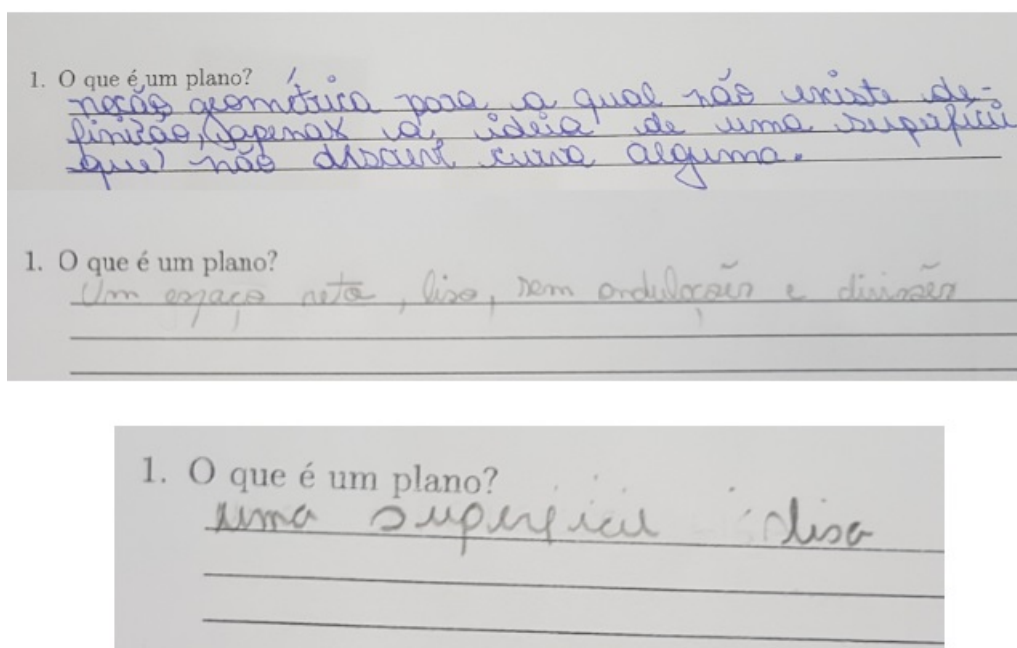 1. O que é um plano?
noção geométrica para a qual não existe de-
finição, apenas a ideia de uma superfície
que não descreve curva alguma.
1. O que é um plano?
Um espaço reto, liso, sem ondulações e divisões
1. O que é um plano?
uma superficie lisa